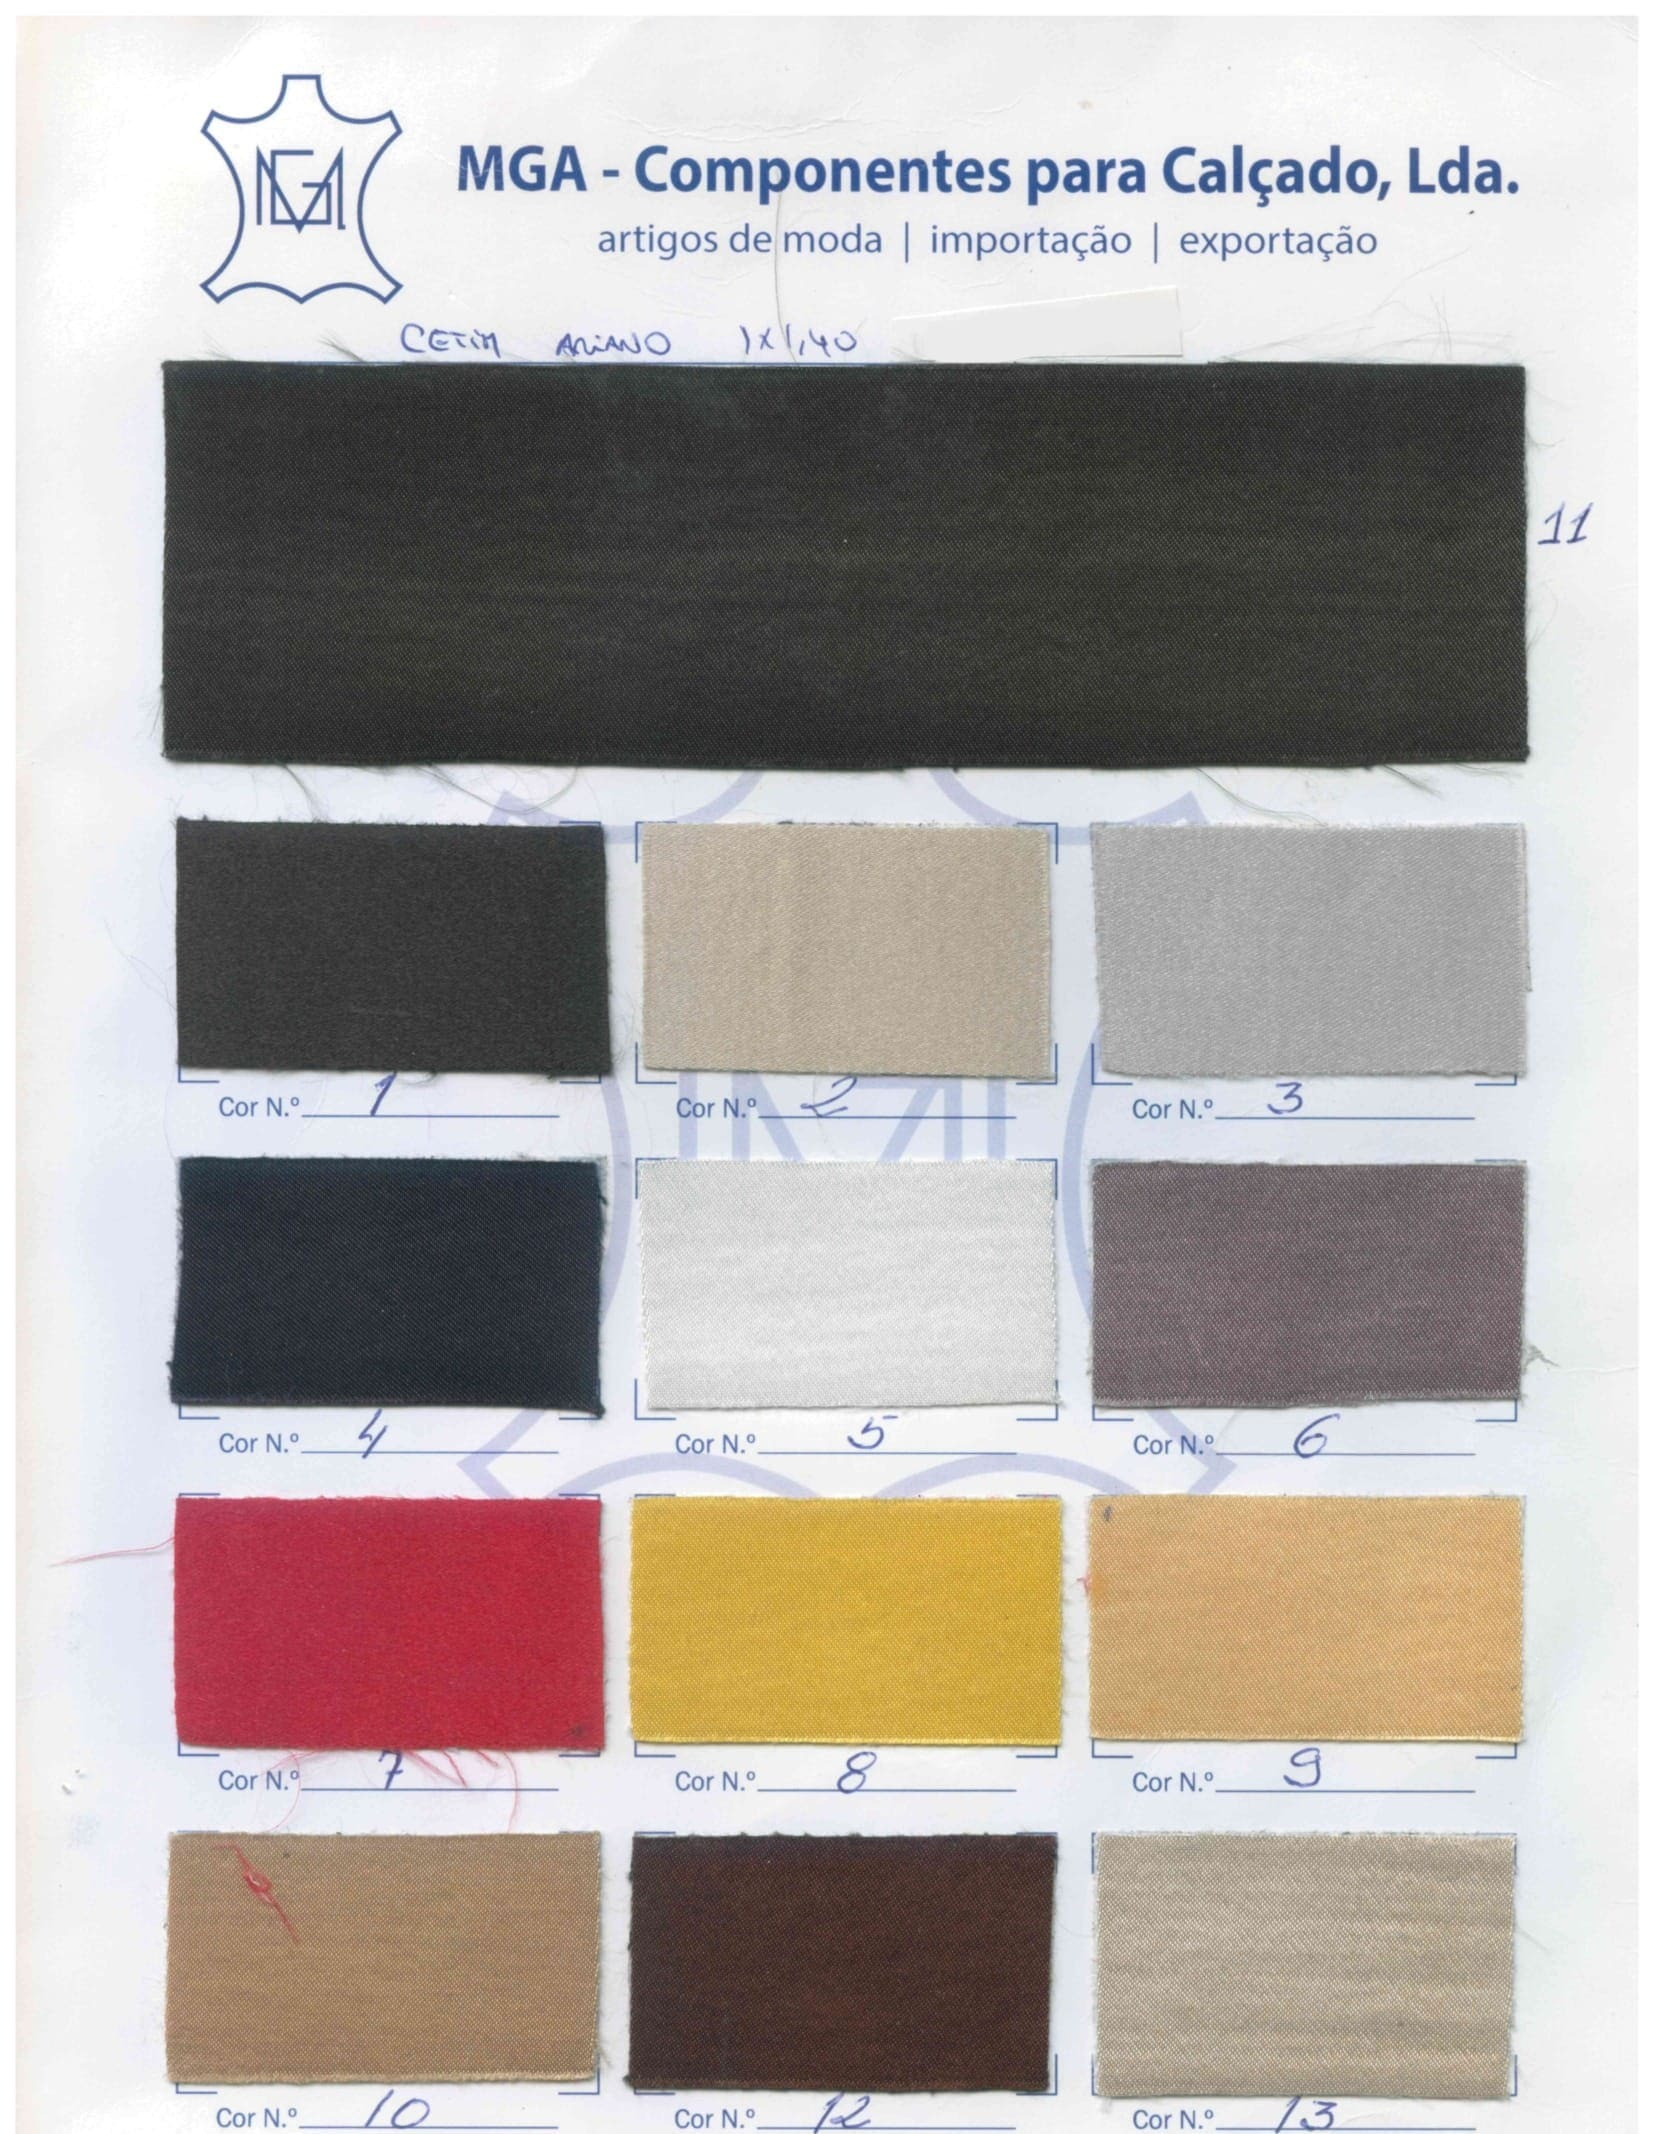 MGA
MGA - Componentes para Calçado, Lda.
artigos de moda | importação | exportação
CETIM ARIANO 1X1,40
11
Cor N.º 1
Cor N.º 2
Cor N.º 3
Cor N.º 4
Cor N.º 5
Cor N.º 6
Cor N.º 7
Cor N.º 8
Cor N.º 9
Cor N.º 10
Cor N.º 12
Cor N.º 13